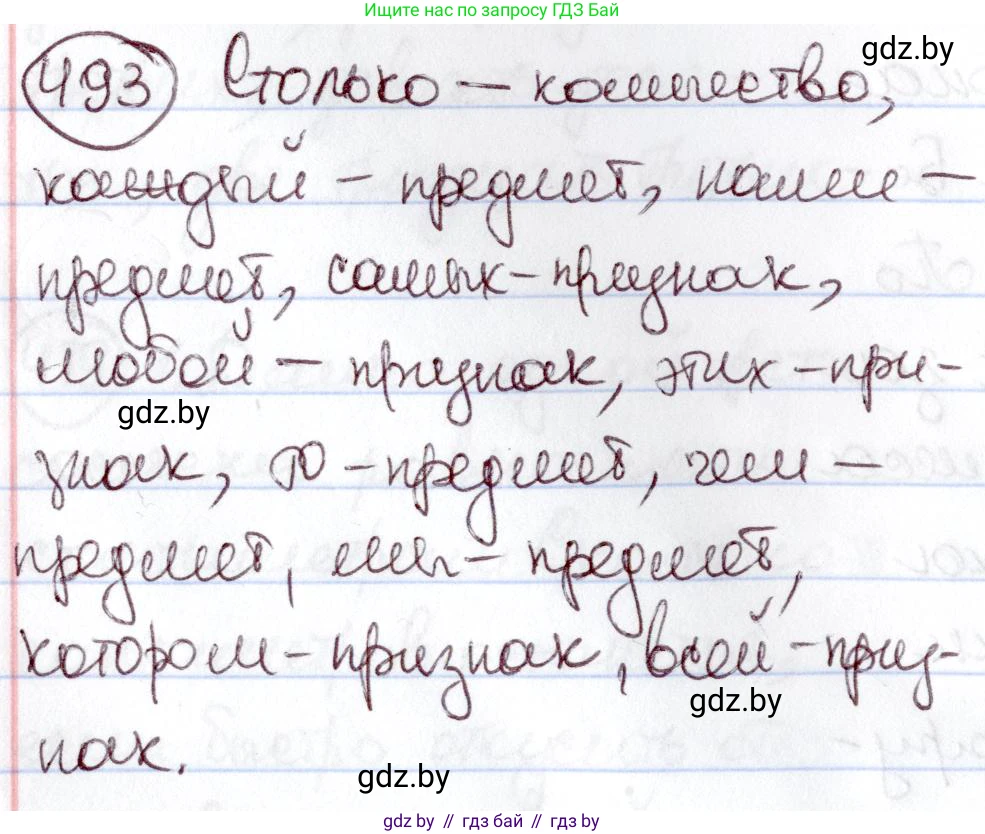 Ищите нас по запросу ГДЗ Бай
gdz.by
493 Столько – количество,
каждый – предмет, нами –
предмет, самых – признак,
любой – признак, этих – при-
gdz.by
знак, то – предмет, чем –
предмет, мы – предмет,
котором – признак, всей – приз-
gdz.by
нак.
gdz.by
gdz.by // гдз бай // гдз.by